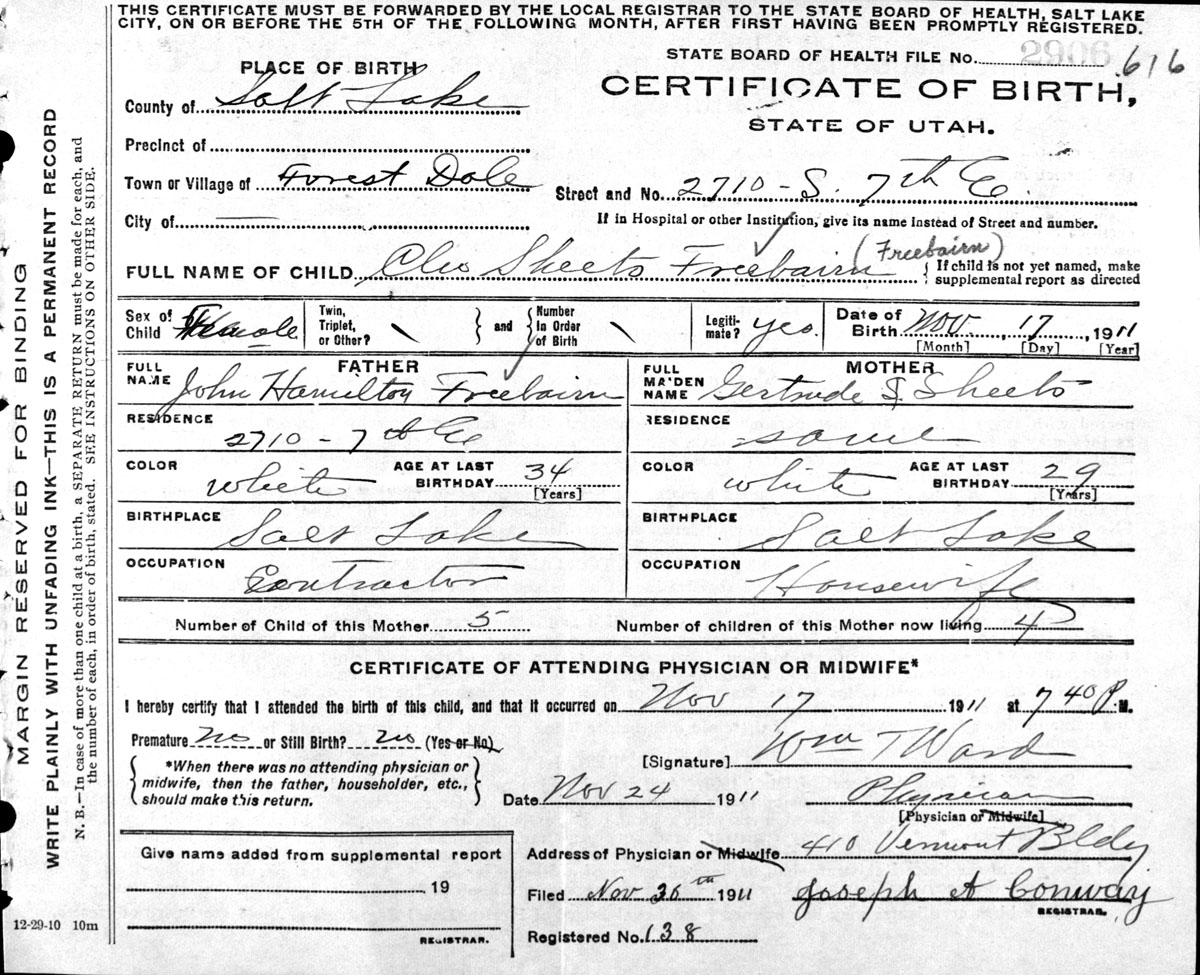 THIS CERTIFICATE MUST BE FORWARDED BY THE LOCAL REGISTRAR TO THE STATE BOARD OF HEALTH, SALT LAKE
CITY, ON OR BEFORE THE 5TH OF THE FOLLOWING MONTH, AFTER FIRST HAVING BEEN PROMPTLY REGISTERED.
MARGIN RESERVED FOR BINDING
WRITE PLAINLY WITH UNFADING INK—THIS IS A PERMANENT RECORD
N. B.—In case of more than one child at a birth, a SEPARATE RETURN must be made for each, and
the number of each, in order of birth, stated. SEE INSTRUCTIONS ON OTHER SIDE.
STATE BOARD OF HEALTH FILE No. 2906 616
PLACE OF BIRTH
CERTIFICATE OF BIRTH,
STATE OF UTAH.
County of Salt Lake
Precinct of
Town or Village of Forest Dale
Street and No. 2710 - S. 7th E.
City of
If in Hospital or other Institution, give its name instead of Street and number.
(Freebairn)
FULL NAME OF CHILD Cleo Sheets Freebairn
{ If child is not yet named, make
supplemental report as directed
Sex of Child Female
Twin, Triplet, or Other? \
and
Number In Order of Birth \
Legiti-mate? yes.
Date of Birth Nov. 17, 1911
[Month] [Day] [Year]
FATHER
FULL NAME John Hamilton Freebairn
MOTHER
FULL MAIDEN NAME Gertrude S. Sheets
RESIDENCE 2710 - 7th E
RESIDENCE same
COLOR white
AGE AT LAST BIRTHDAY 34 [Years]
COLOR white
AGE AT LAST BIRTHDAY 29 [Years]
BIRTHPLACE Salt Lake
BIRTHPLACE Salt Lake
OCCUPATION Contractor
OCCUPATION Housewife
Number of Child of this Mother 5
Number of children of this Mother now living 4
CERTIFICATE OF ATTENDING PHYSICIAN OR MIDWIFE*
I hereby certify that I attended the birth of this child, and that it occurred on Nov 17 1911 at 7 40 P. M.
Premature no or Still Birth? no (Yes or No)
[Signature] Wm T Ward
*When there was no attending physician or
midwife, then the father, householder, etc.,
should make this return.
Date Nov 24 1911
Physician
[Physician or Midwife]
Address of Physician or Midwife 410 Vermont Bldg
Give name added from supplemental report
19
REGISTRAR.
Filed Nov 30th 1911
Joseph A Conway
REGISTRAR.
Registered No. 138
12-29-10 10m